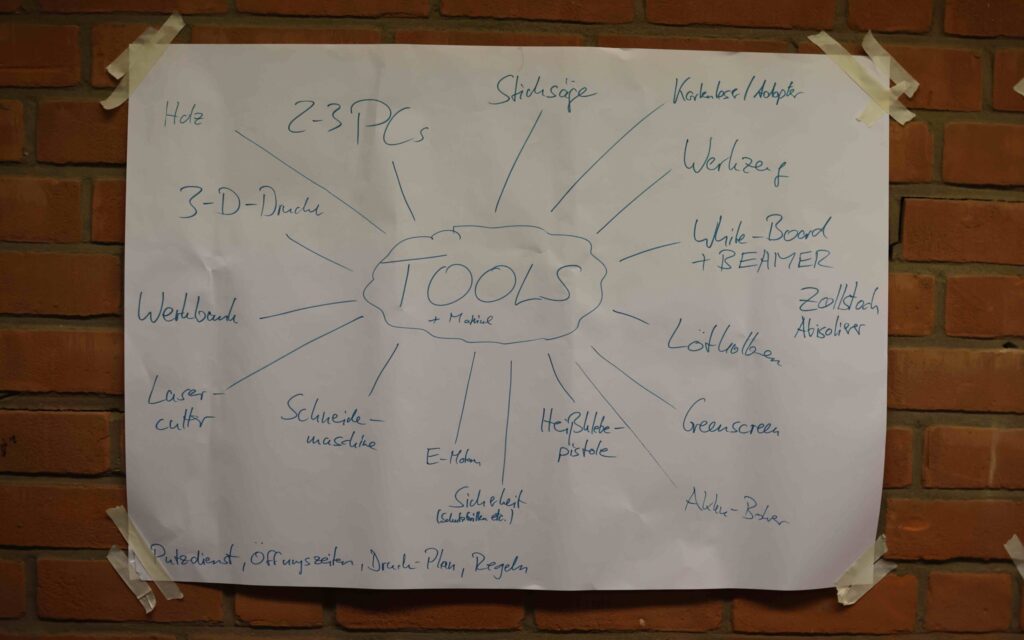 Holz
2-3 PCs
Stichsäge
Kartenleser/Adapter
3-D-Drucker
Werkzeug
White-Board
+ BEAMER
TOOLS
+ Material
Zollstock
Abisolierer
Werkbank
Lötkolben
Laser-
cutter
Schneide-
maschine
E-Motoren
Heißklebe-
pistole
Greenscreen
Sicherheit
(Schutzbrillen etc.)
Akku-Bohrer
Putzdienst, Öffnungszeiten, Druck-Plan, Regeln